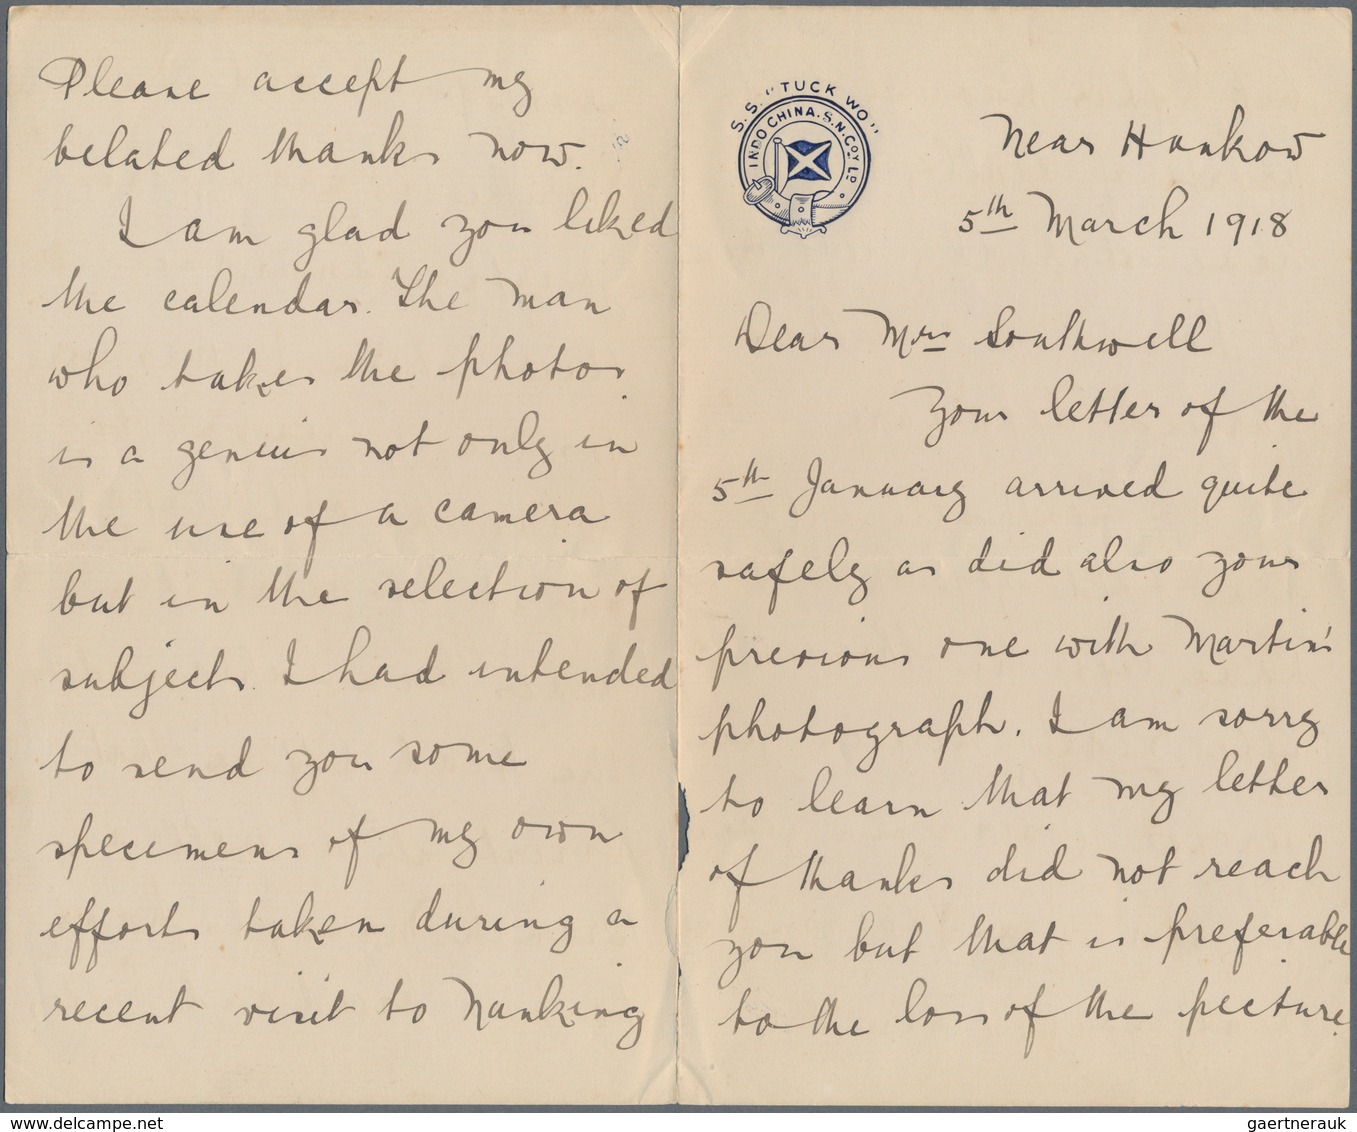 S.S. "TUCK WO"
INDO CHINA. S. N. COY LD
Near Hankow
5th March 1918
Dear Mrs Southwell
Your letter of the
5th January arrived quite
safely as did also your
previous one with Martin's
photograph. I am sorry
to learn that my letter
of thanks did not reach
you but that is preferable
to the loss of the picture.
Please accept my
belated thanks now.
I am glad you liked
the calendar. The man
who takes the photos
is a genius not only in
the use of a camera
but in the selection of
subjects. I had intended
to send you some
specimens of my own
efforts taken during a
recent visit to Nanking
gaertnerauk
www.delcampe.net